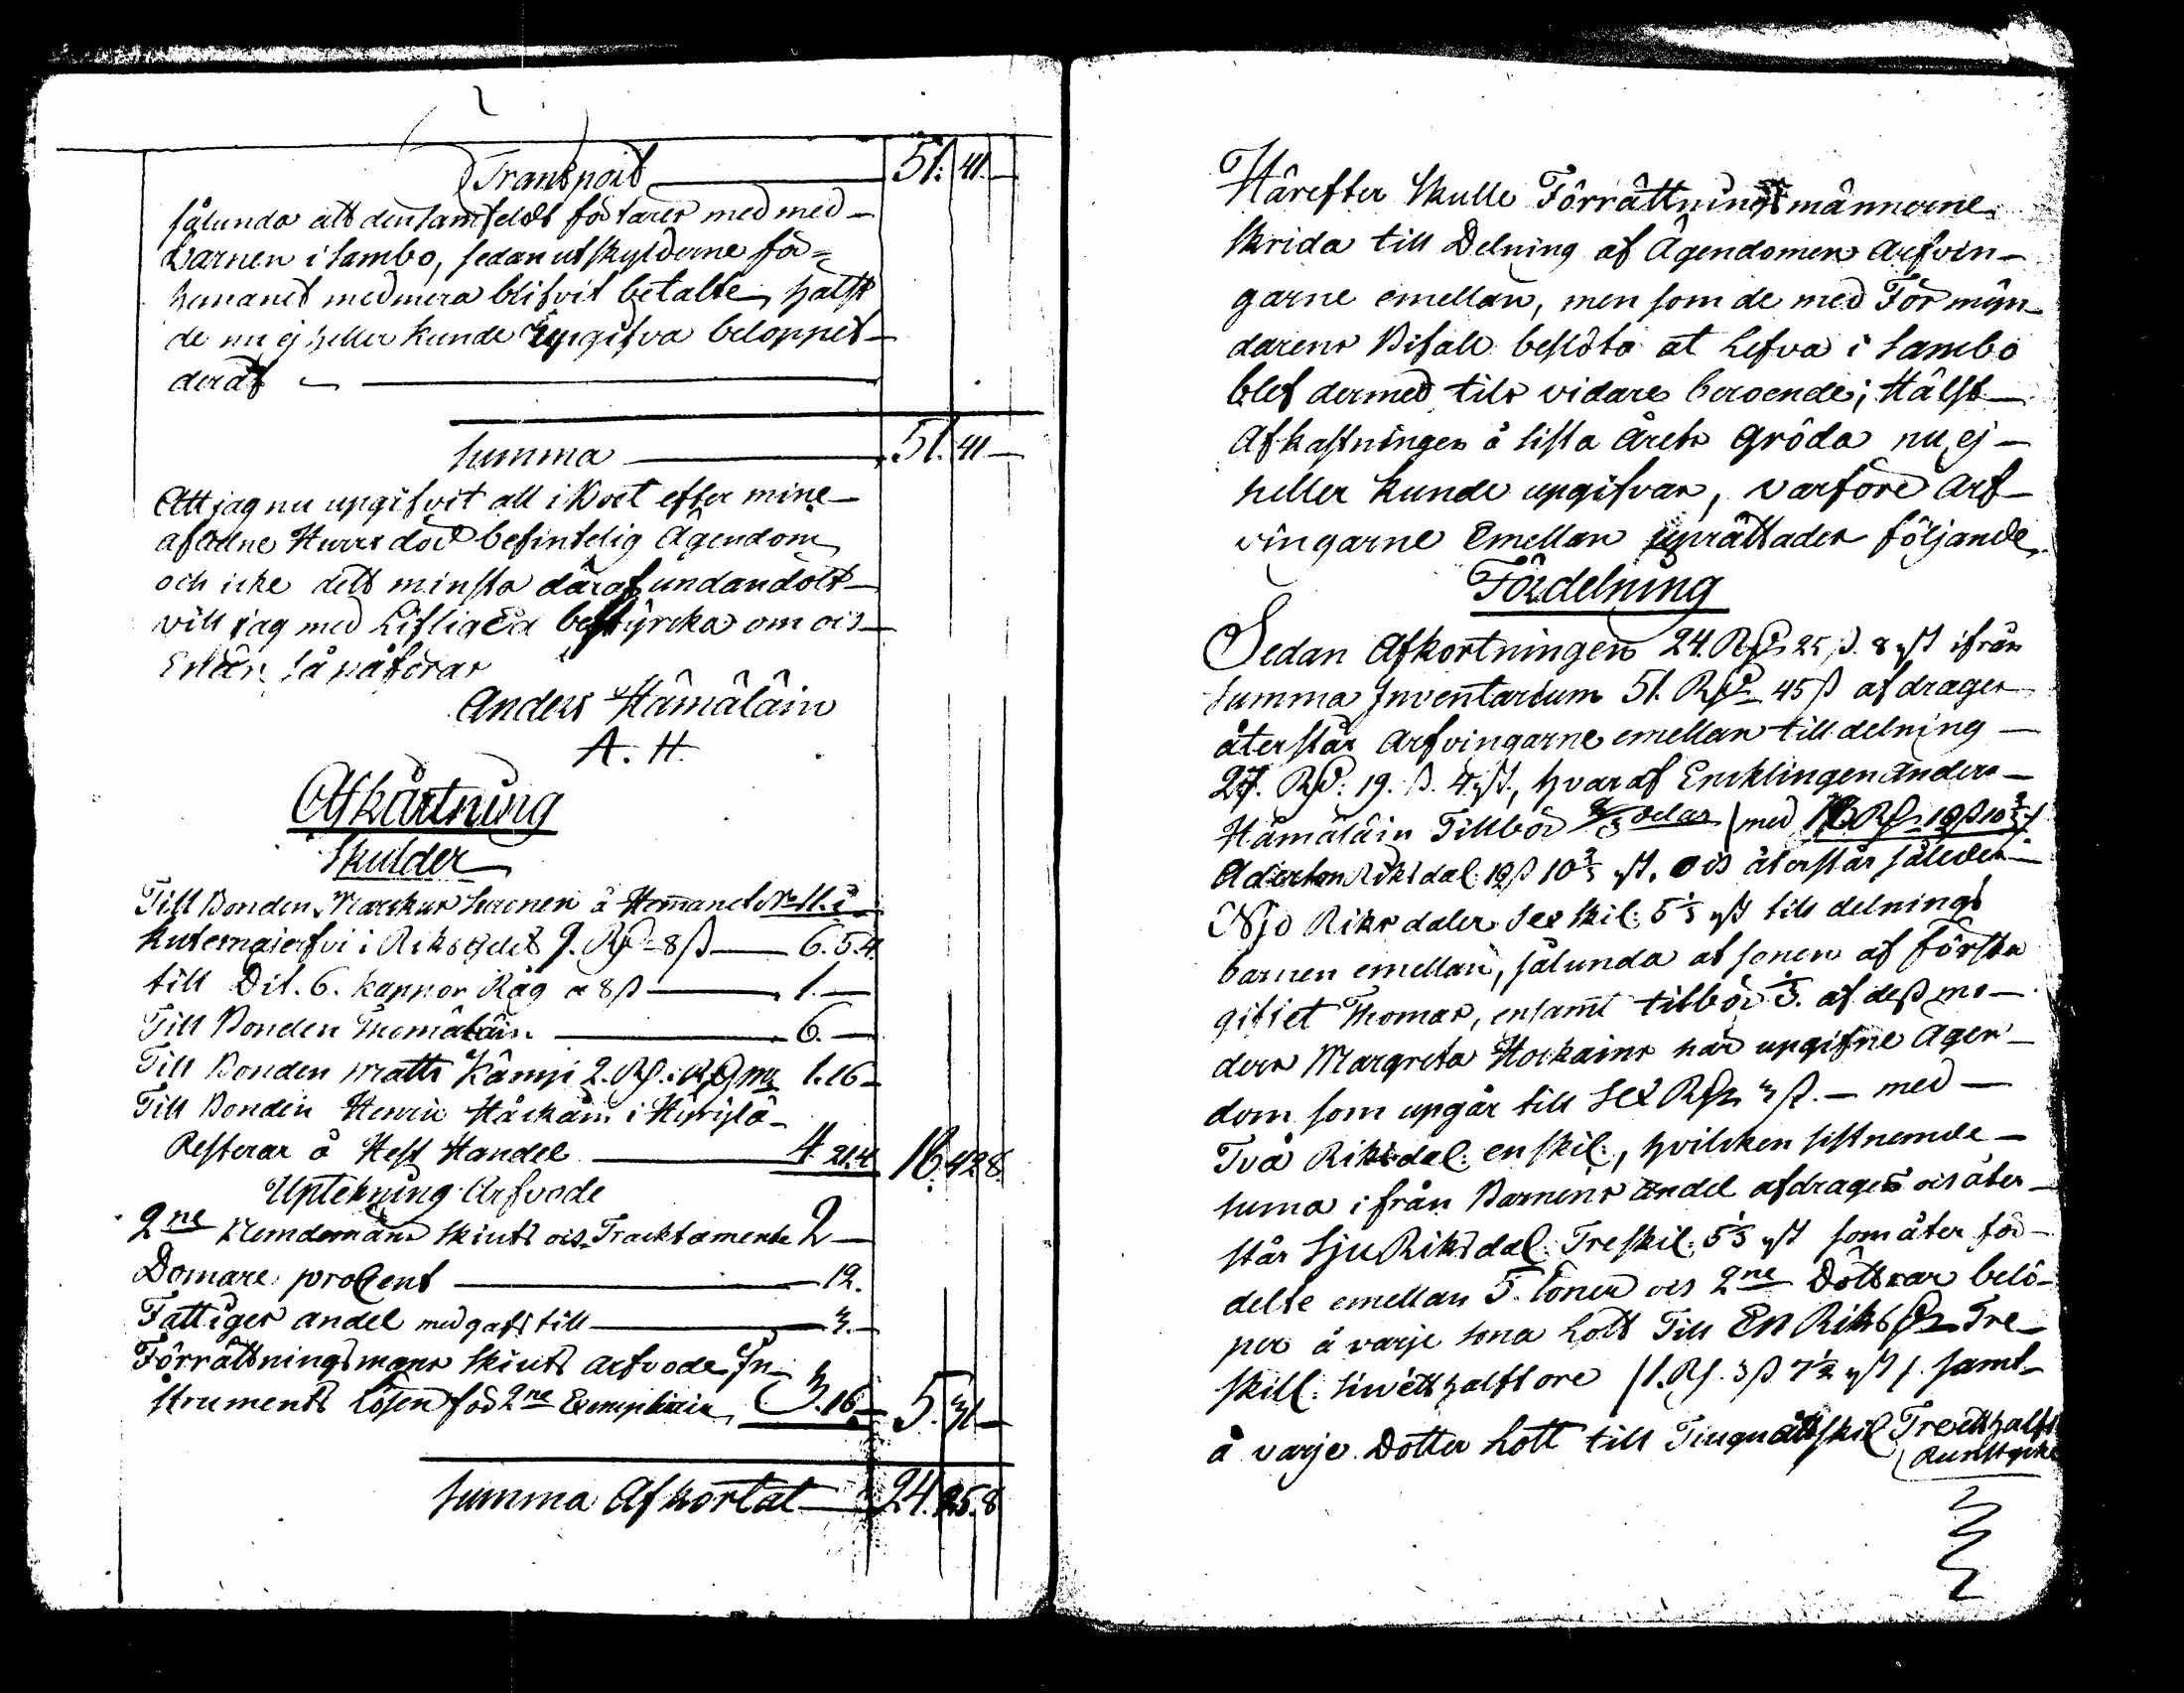 Transport — 51. 41. —
sålunda att densamfeldt förtäres med med-
barnen i sambo, sedan utskylderne för
hemanet medmera blifvit betalte, hälst
de nu ej heller kunde upgifva beloppet
deraf —
Summa — 51. 41 —
Att jag nu upgifvit alt i Boet efter mine
afledne Hurus död befintelig Ägendom
och icke dett minsta däraf undandolt
vill jag med Liflig Ed bestyrcka om och
Erkän. så påfordras
Anders Hämäläin
A. H.
Afkårtning
Skulder
Till Bonden Marckus Leronen å Hemmanet No 11. i
Kutemajerfvi i Riksgeld 9. Rd 8 ß — 6. 5. 4.
till Dit. 6. kappor Råg a 8 ß — 1. —
Till Bonden Thom — 6. —
Till Bonden Matts Kämpi 2. Rd. R.G. 1. 16 —
Till Bonden Henric Håckain i
Resterar å Hest Handel — 4 21.4 16. 42 8.
Uptekning Arfvode
2ne Nemdemäns skiuts och Tracktamente 2 —
Domare procent — 12.
Fattiges andel medgafs till — 3. —
Förrättningsmans skiuts arfvode In-
struments Lösen för 2ne Exemplair 3. 16 — 5. 31 —
Summa Afkortat — 24. 25. 8
Härefter skulle Förrättningsmännerne
skrida till Delning af Ägendomen Arfvin-
garne emellan, men som de med Förmyn-
darens Bifall beslöto at Lefva i Sambo
blef dermed tils vidare beroende; Hälst
Afkastningen å sista Årets gröda nu ej
heller kunde upgifvas, varföre Arf-
vingarne Emellan uprättades följande
Fördelning
Sedan Afkortningen 24. Rd 25 ß. 8 rst ifrån
Summa Inventarium 51. Rd 45 ß afdrages
återstår Arfvingarne emellan till delning
27. Rd: 19. ß. 4 rst, hvaraf Encklingen Anders
Hämäläin Tillbör 2/3 delar / med 18 Rd 10 ß 10 2/3 /
Aderton Riksdal. 10 ß 10 2/3 rst. och återstår således
Nijo Riks daler Sex skil: 5 1/3 rst till delnings
barnen emellan, sålunda at sonen af första
giftet Thomas, ensamt tilbör 1/3. af dess mo-
ders Margreta Hockains här upgifne Ägen-
dom som upgår till Sex Rd 3 ß. — med —
Två Riksdal: en skil:, hvilcken sistnemde
suma ifrån Barnens andel afdrages och åter-
står Sju Riksdal: Fre skil: 5 1/3 rst som åter för-
delte emellan 5. söner och 2ne Döttrar belö-
per å varje sons Lott Till En Riksd Tre
skill. siu ett halft ore / 1. Rd. 3 ß 7 1/2 rst /. samt
å varje Dotter Lott till Tiuguått skil Tre etthalft
Runstycke